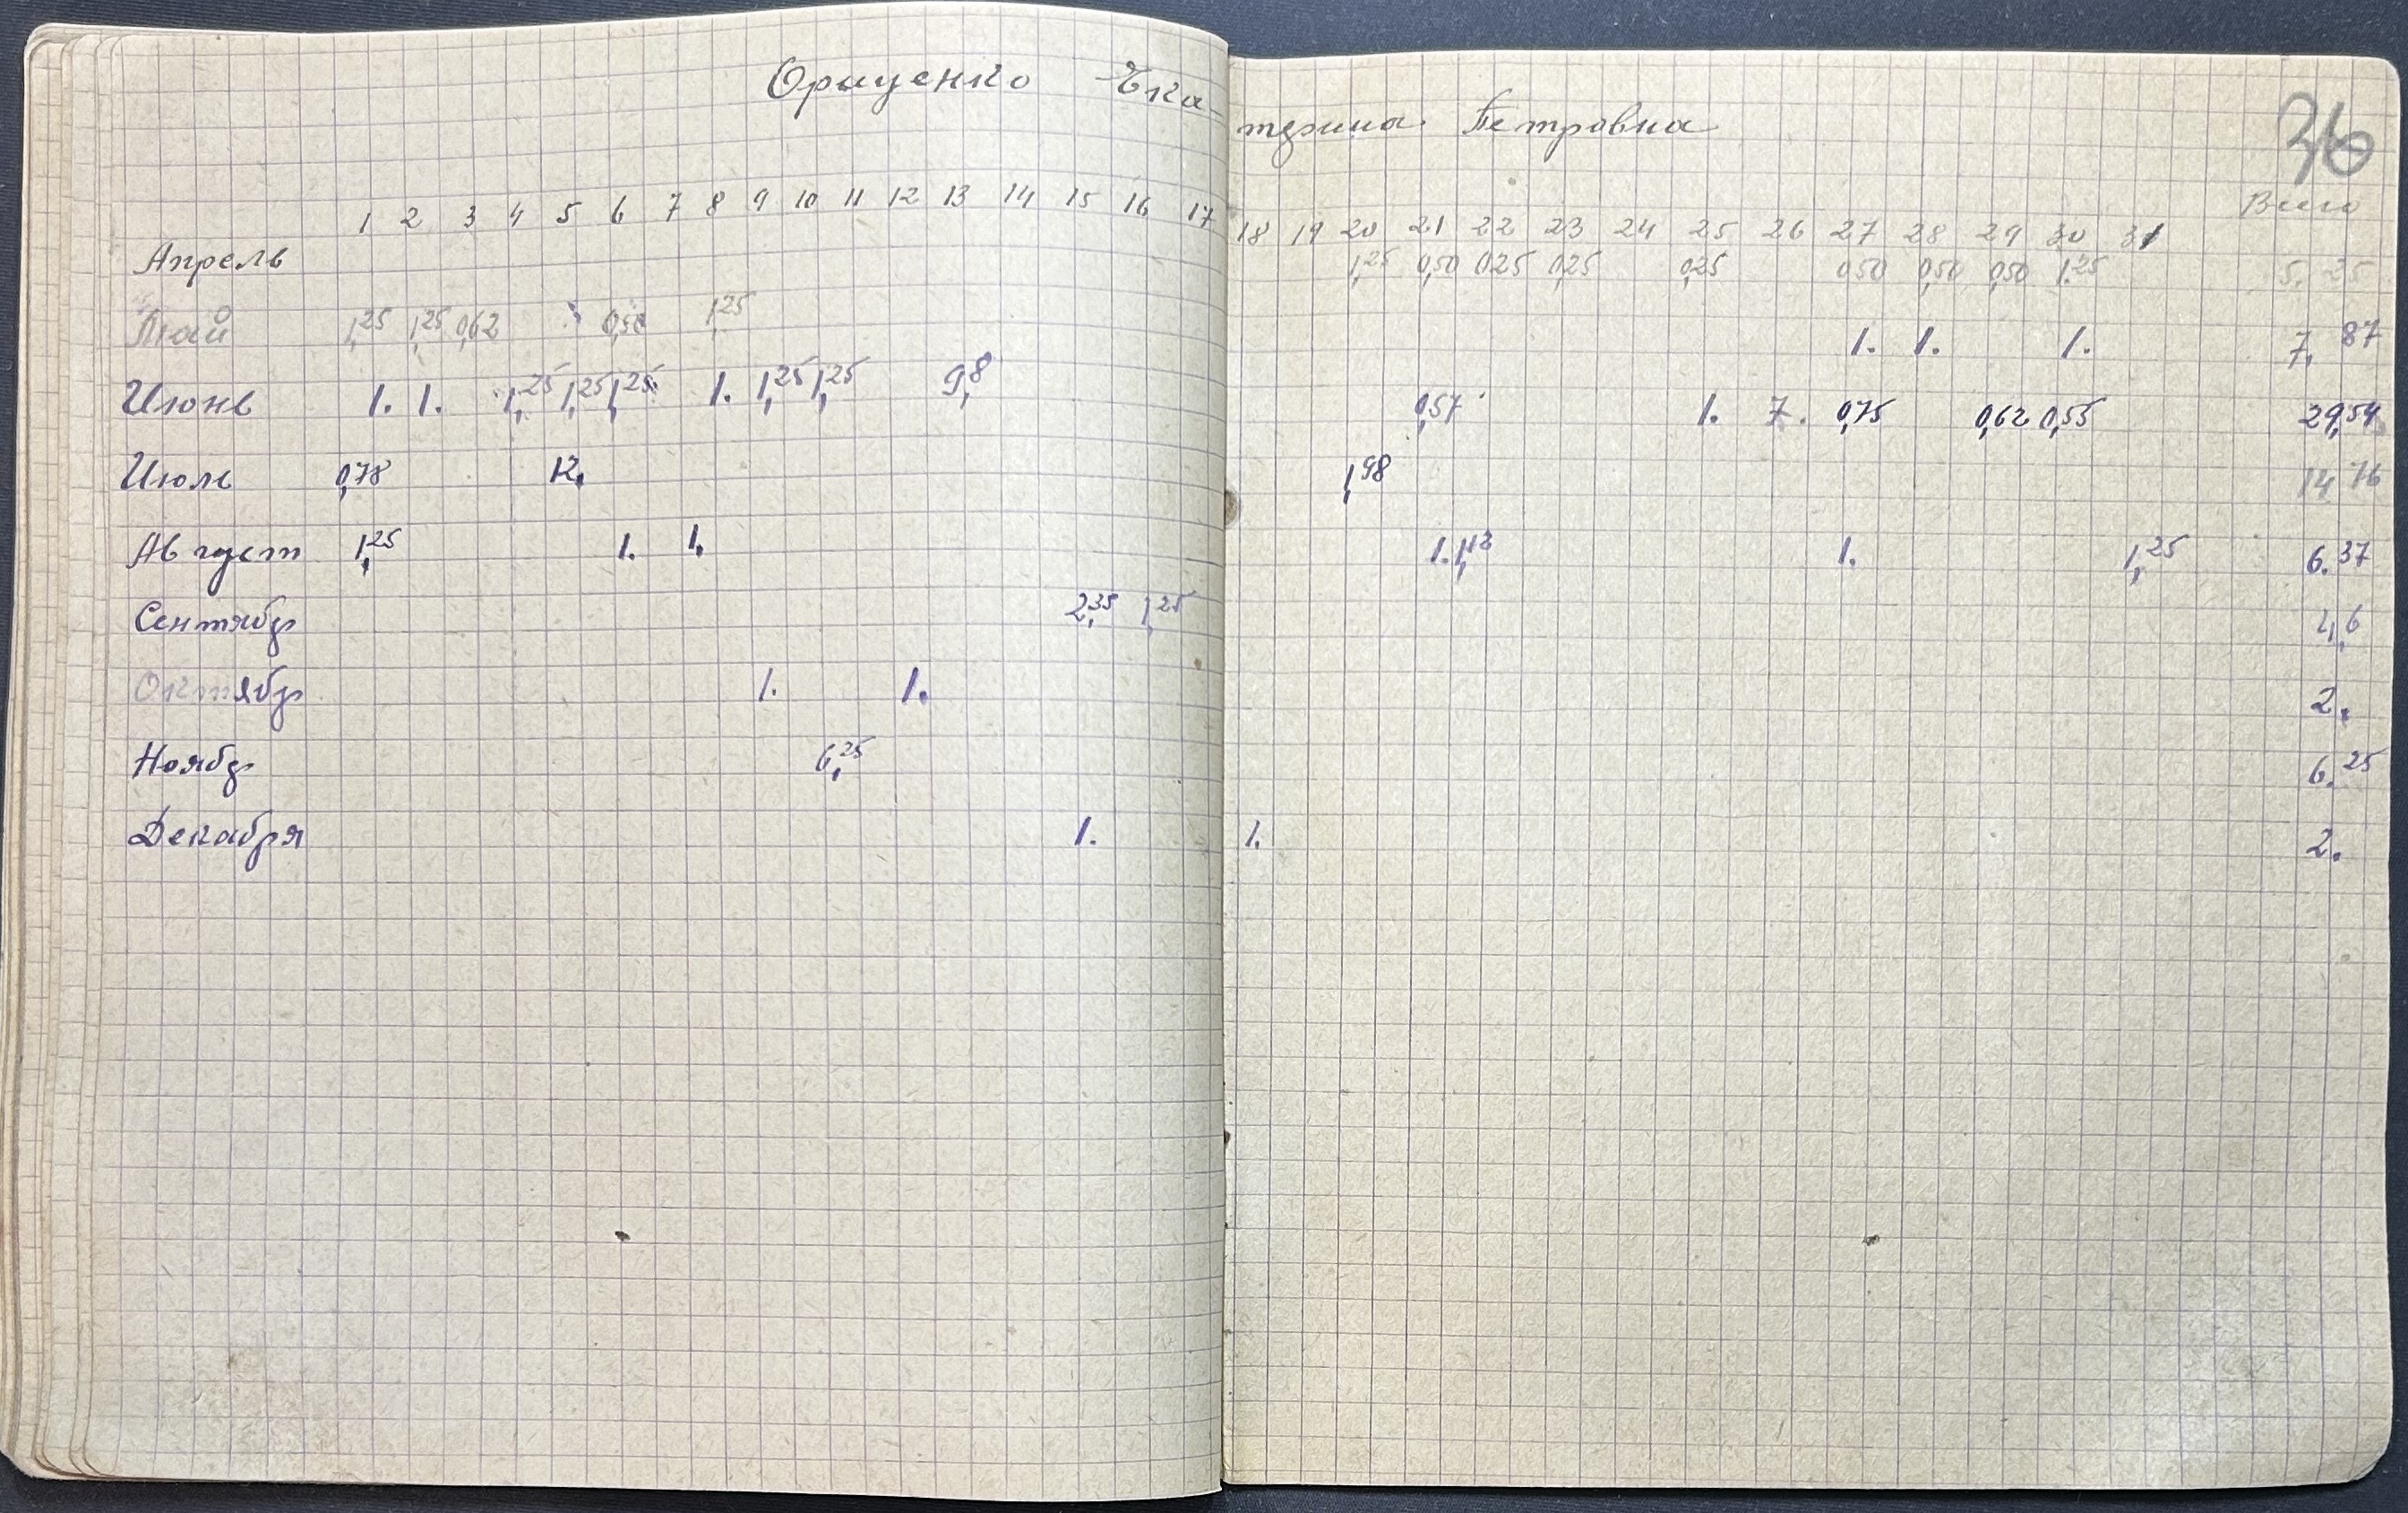 Орищенко Ека-
терина Петровна
36
1 2 3 4 5 6 7 8 9 10 11 12 13 14 15 16 17 18 19 20 21 22 23 24 25 26 27 28 29 30 31 Всего
Апрель 1,25 0,50 025 0,25 0,25 0,50 0,50 0,50 1.25 5. 25
Май 1,25 1,25 0,62 0,50 1,25 1. 1. 1. 7, 87
Июнь 1. 1. 1,25 1,25 1,25 1. 1,25 1,25 9,8 0,57 1. 7. 0,75 0,62 0,55 29,54
Июль 0,78 12. 1,98 14 76
Август 1,25 1. 1. 1. 1,12 1. 1,25 6.37
Сентябр 2,35 1,25 4,6
Октябр 1. 1. 2.
Ноябр 6,25 6.25
Декабря 1. 1. 2.